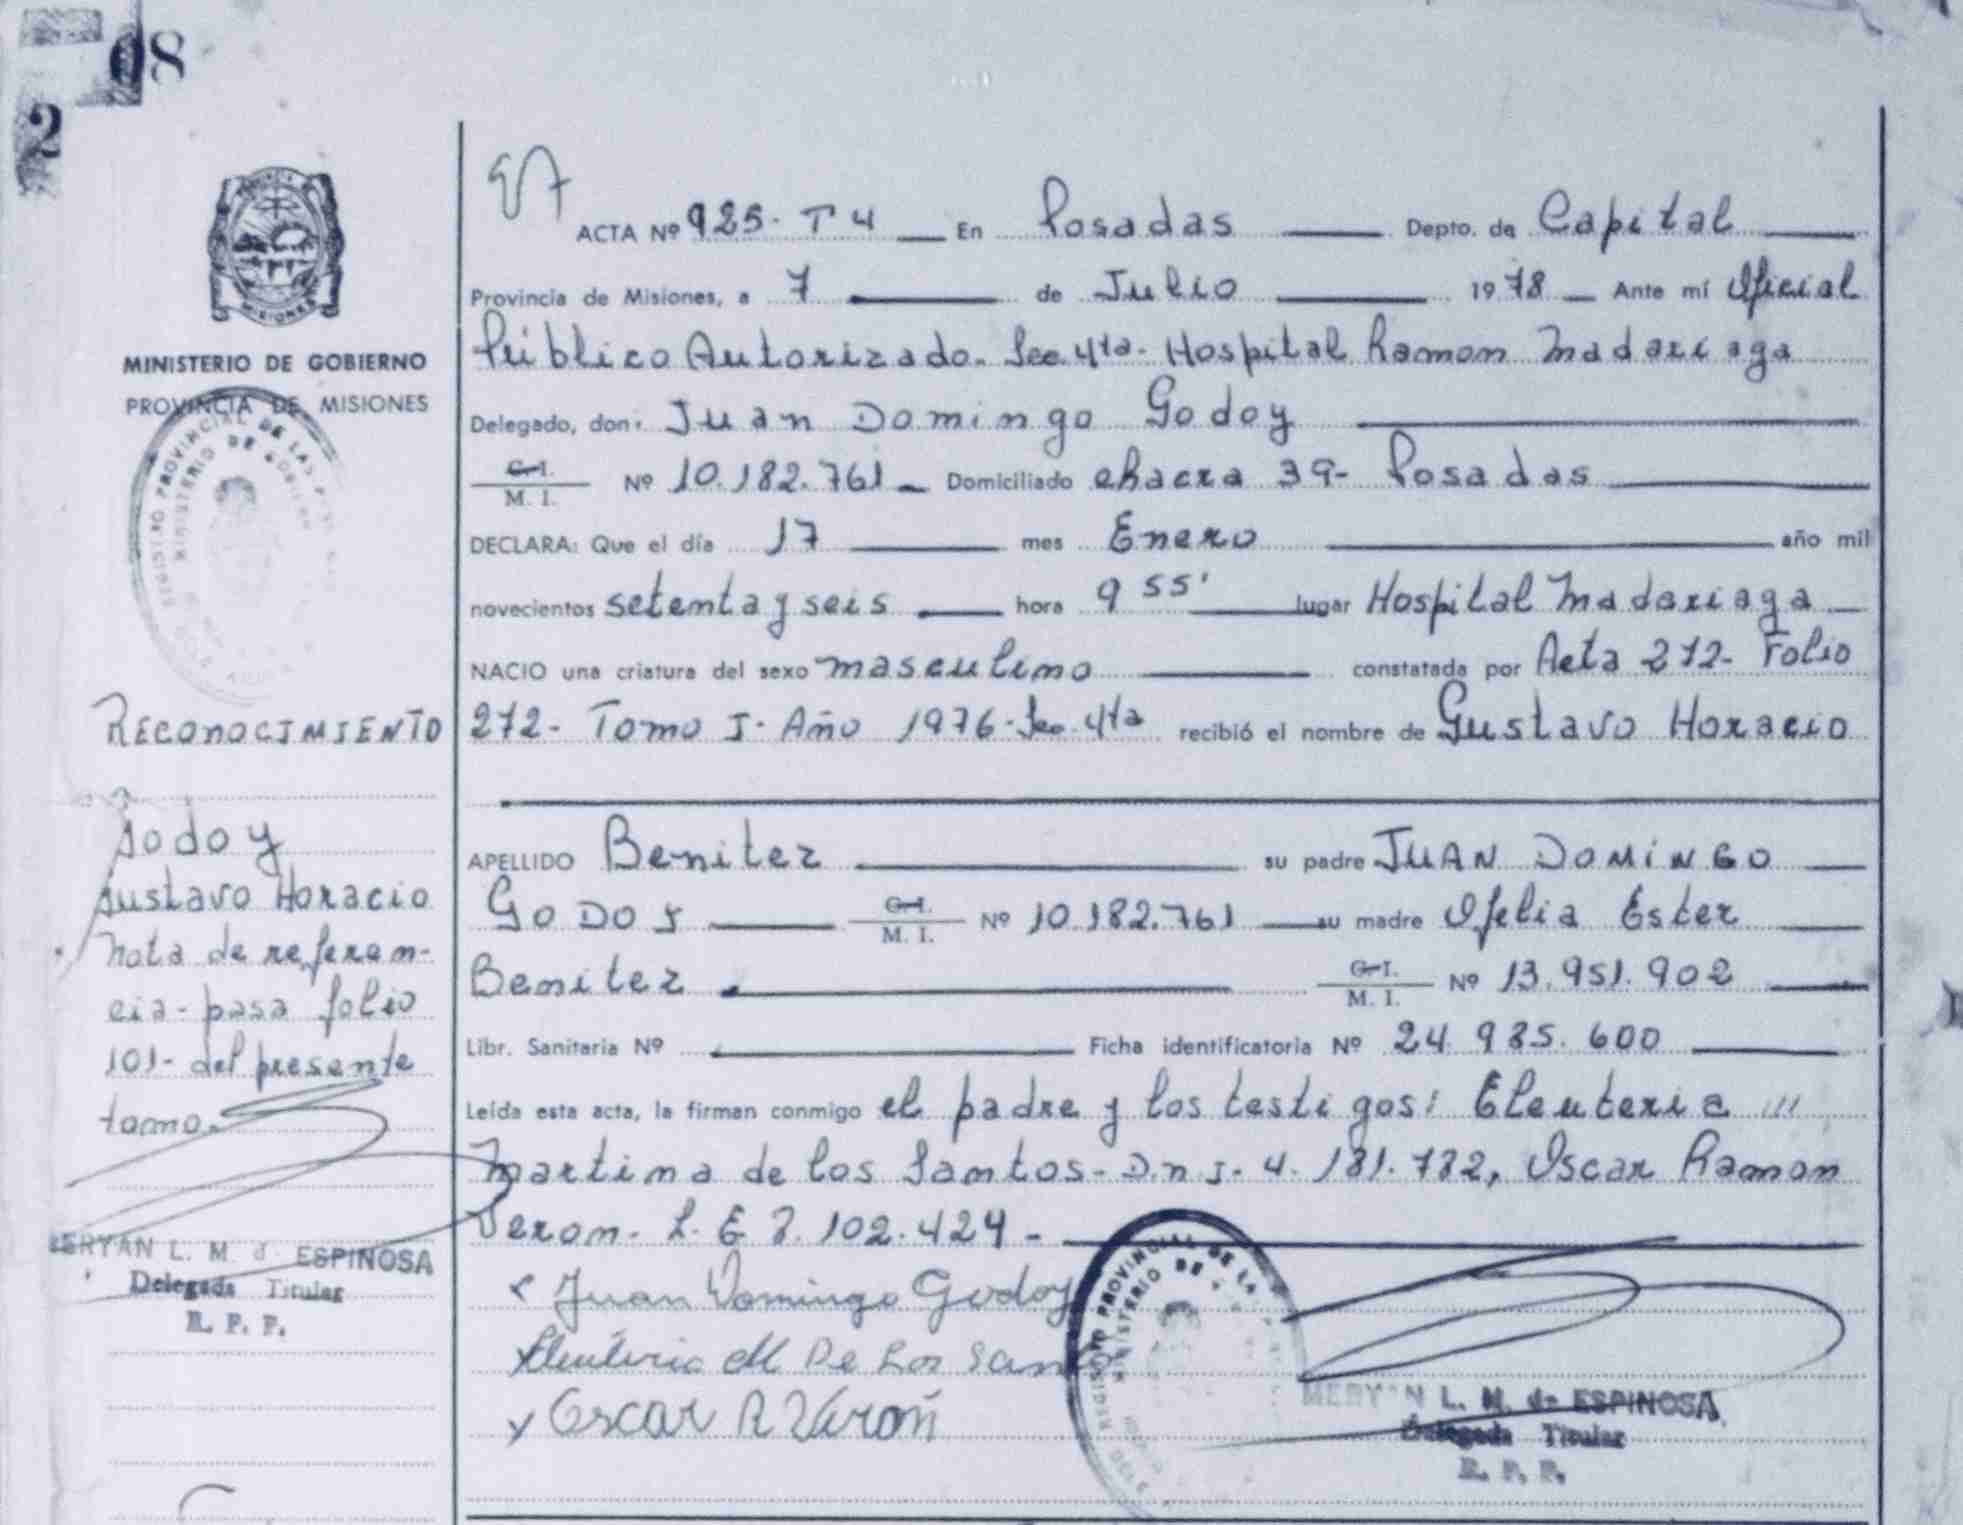 08
2
MISIONES
MINISTERIO DE GOBIERNO
PROVINCIA DE MISIONES
REGISTRO PROVINCIAL DE LAS
MINISTERIO DE GOBIERNO
RECONOCIMIENTO
Godoy
Gustavo Horacio
Nota de referen-
cia - pasa folio
101 - del presente
tomo.
MERYAN L. M. d ESPINOSA
Delegada Titular
R. P. P.
ACTA Nº 925 - T 4 En Posadas Depto. de Capital
Provincia de Misiones, a 7 de Julio 1978 Ante mí Oficial
Público Autorizado - Sec. 4ta - Hospital Ramon Madariaga
Delegado, don: Juan Domingo Godoy
C. I.
M. I. Nº 10.182.761 Domiciliado chacra 39 - Posadas
DECLARA: Que el día 17 mes Enero año mil
novecientos setenta y seis hora 9 55' lugar Hospital Madariaga
NACIO una criatura del sexo masculino constatada por Acta 272 - Folio
272 - Tomo I - Año 1976 - Sec. 4ta recibió el nombre de Gustavo Horacio
APELLIDO Benitez su padre JUAN DOMINGO
GODOY C. I.
M. I. Nº 10.182.761 su madre Ofelia Ester
Benitez C. I.
M. I. Nº 13.951.902
Libr. Sanitaria Nº Ficha identificatoria Nº 24.985.600
Leída esta acta, la firman conmigo el padre y los testigos: Eleuteria
Martina de los Santos - D.N.I - 4.181.782, Oscar Ramon
Veron - L. E 7.102.424 -
Juan Domingo Godoy
Eleuteria M De Los San
Oscar R Verón
REGISTRO PROVINCIAL DE LA
MINISTERIO DE
MERYAN L. M. de ESPINOSA
Delegada Titular
R. P. P.